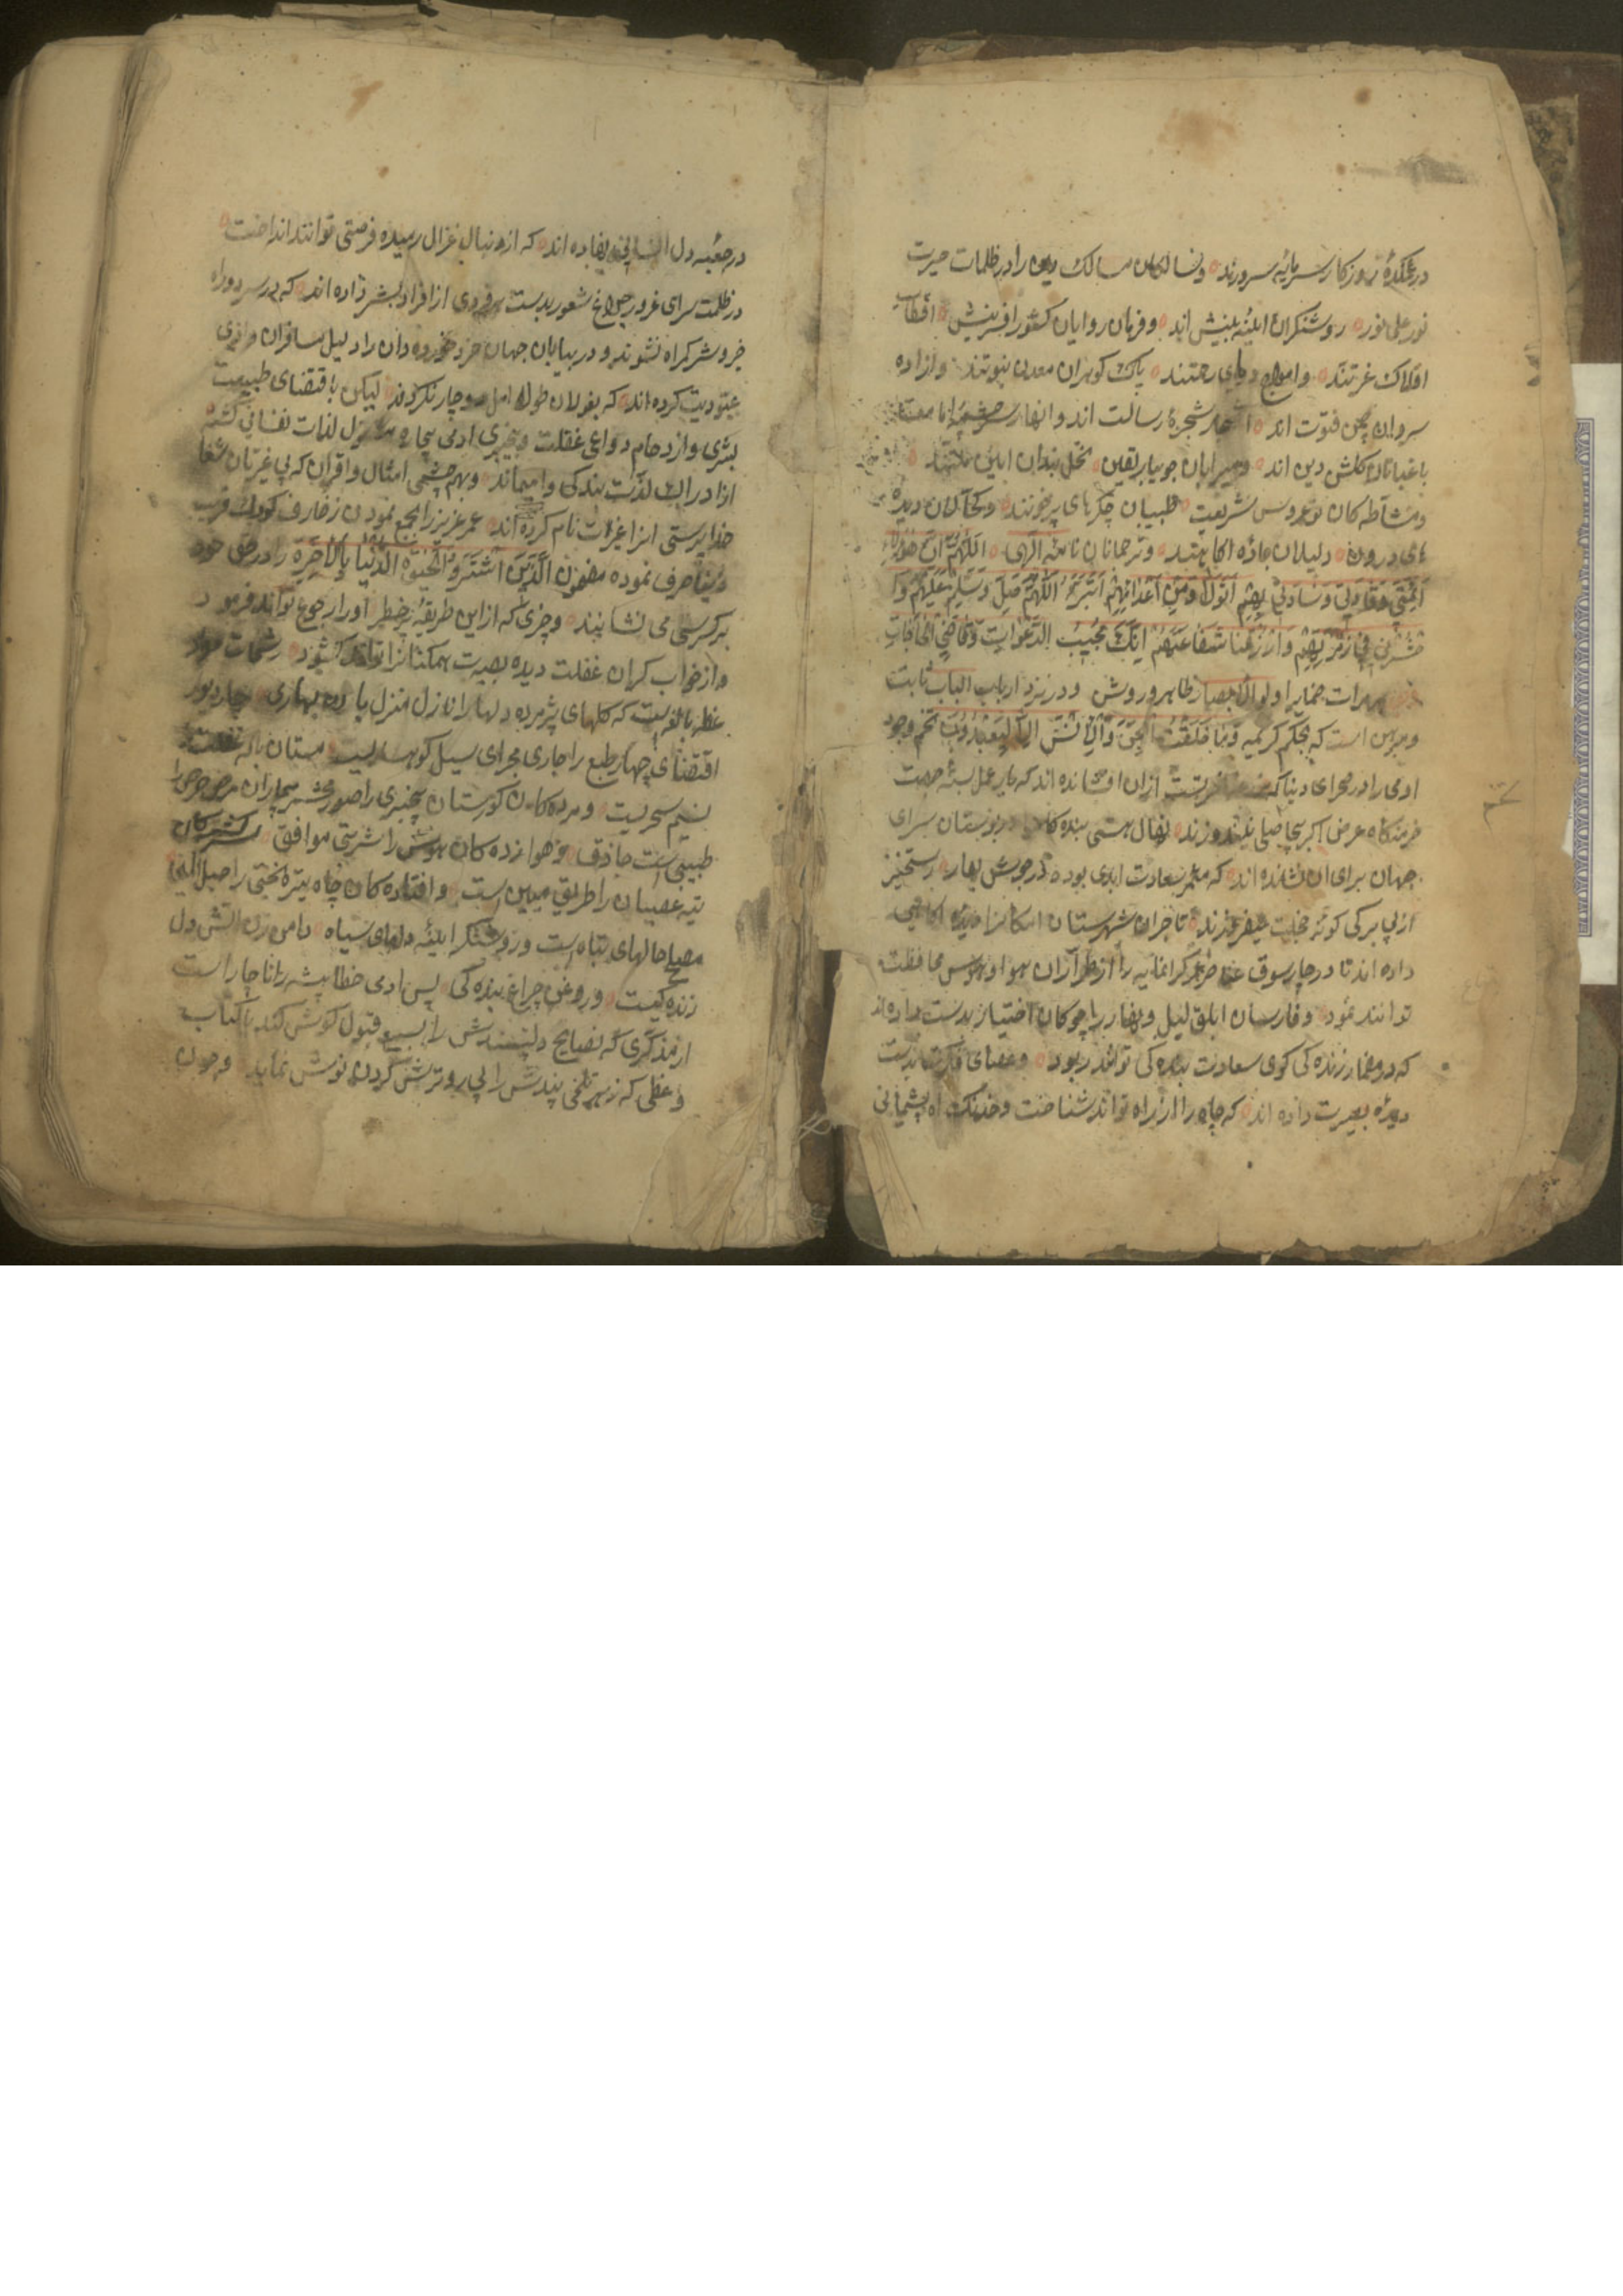 در غمکدهٔ روزکار سرمایهٔ سرورند و سالکان مسالک دین را در ظلمات حیرت
نور علی نور روشنکران ایینهٔ بینش اند و فرمان روایان کشور افرینش اقطاب
افلاک عزتند و امواج دریای رحمتند پاک کوهران معدن نبوتند و ازاده
سروان چمن فتوت اند اشجار شجرهٔ رسالت اند و انهار سرچشمهٔ
باغبانان کلشن دین اند و میرابان جویبار یقین نخل بندان ایین
و مشاطه کان نوعروس شریعت طبیبان جکرهای پرخونند و کحالان دیده
های درون دلیلان جادهٔ اکاهیند و ترجمانان نامهٔ الهی اللهم ان هؤلاء
ائمتی و قادتی و سادتی بهم اتولی و من اعدائهم اتبرء اللهم صل و سلم علیهم و ا
حشرنی فی زمرتهم و ارزقنا شفاعتهم انک مجیب الدعوات و قاضی الحاجات
بر مرات ضمایر اولو الابصار ظاهر و روشن و در نزد ارباب الباب ثابت
و مبرهن است که بحکم کریمه وما خلقت الجن والانس الا لیعبدون تخم وجود
ادمی را در صحرای دنیا که ازان افشانده اند که بار عمل بسته جهت
خرمنکاه عرض اکبر بیحاصلی نیندوزند نهال هستی بنده کان در بوستان سرای
جهان برای ان نشانده اند که مثمر سعادت ابدی بوده در جوش بهار رستخیز
از بی برکی کونهٔ خجلت نیفروزند تاجران شهرستان امکانرا دیدهٔ اکاهی
داده اند تا در چارسوق عناصر عمر کرانمایه را از طراران هوا و هوس محافظت
توانند نمود و فارسان ابلق لیل و نهار را چوکان اختیار بدست داده اند
که در مضمار زنده کی کوی سعادت بنده کی توانند ربود و عصای فکرت بدست
دیدهٔ بصیرت داده اند که چاه را از راه تواند شناخت و خدنک اه پشیمانی
در جعبه دل انسانی نهاده اند که از دنبال غزال رمیده فرصتی توانند انداخت
در ظلمت سرای غرور چراغ شعور بدست هر فردی از افراد بشر داده اند که در سر دوراه
خیر و شر کمراه نشوند و در بیابان جهان خرد خورده دان را دلیل مسافران وادی
عبودیت کرده اند که بغولان طول امل دوچار نکردند لیکن باقتضای طبیعت
بشری و ازدحام دواعی غفلت و بیخبری ادمی بیچاره لذات نفسانی کشته
ازادراک لذت بندکی وامیماند و بهم چشمی امثال و اقران که بی غیرتان
خداپرستی انرا غیرت نام کرده اند عمر عزیز را بجمع نمودن زخارف کودک فریب
دنیا صرف نموده مضمون الذین اشتروا الحیوة الدنیا بالاخرة را در حق خود
بر کرسی می نشانند و چیزی که ازاین طریقهٔ پرخطر او را رجوع تواند فرمود
و از خواب کران غفلت دیده بصیرت همکنانرا تواند کشود رشحات
عظه بالغه است که کلهای پژمرده دلها را نازل منزل باران بهاری چار دیوار
اقتضای چهار طبع را جاری مجرای سیل کوهساریست مستان باده غفلت را
نسیم سحریست و مرده کان کورستان بیخبری را صور محشر بیماران مرض حرص را
طبیبی است حاذق و هوازده کان هوس را شربتی موافق
تیه عصیان را طریق مبین است و افتاده کان چاه تیره بختی را حبل المتین
مصلح حالهای تباه است و روشنکر ایینهٔ دلهای سیاه دامن زن اتش دل
زنده کیست و روغن چراغ بنده کی پس ادمی خطا پیشه را ناچار است
از مذکری که نصایح دلپسندش را بسمع قبول کوش کند یا کتاب
وعظی که زهر تلخی پندش را بی رو ترش کردن نوش نماید و چون